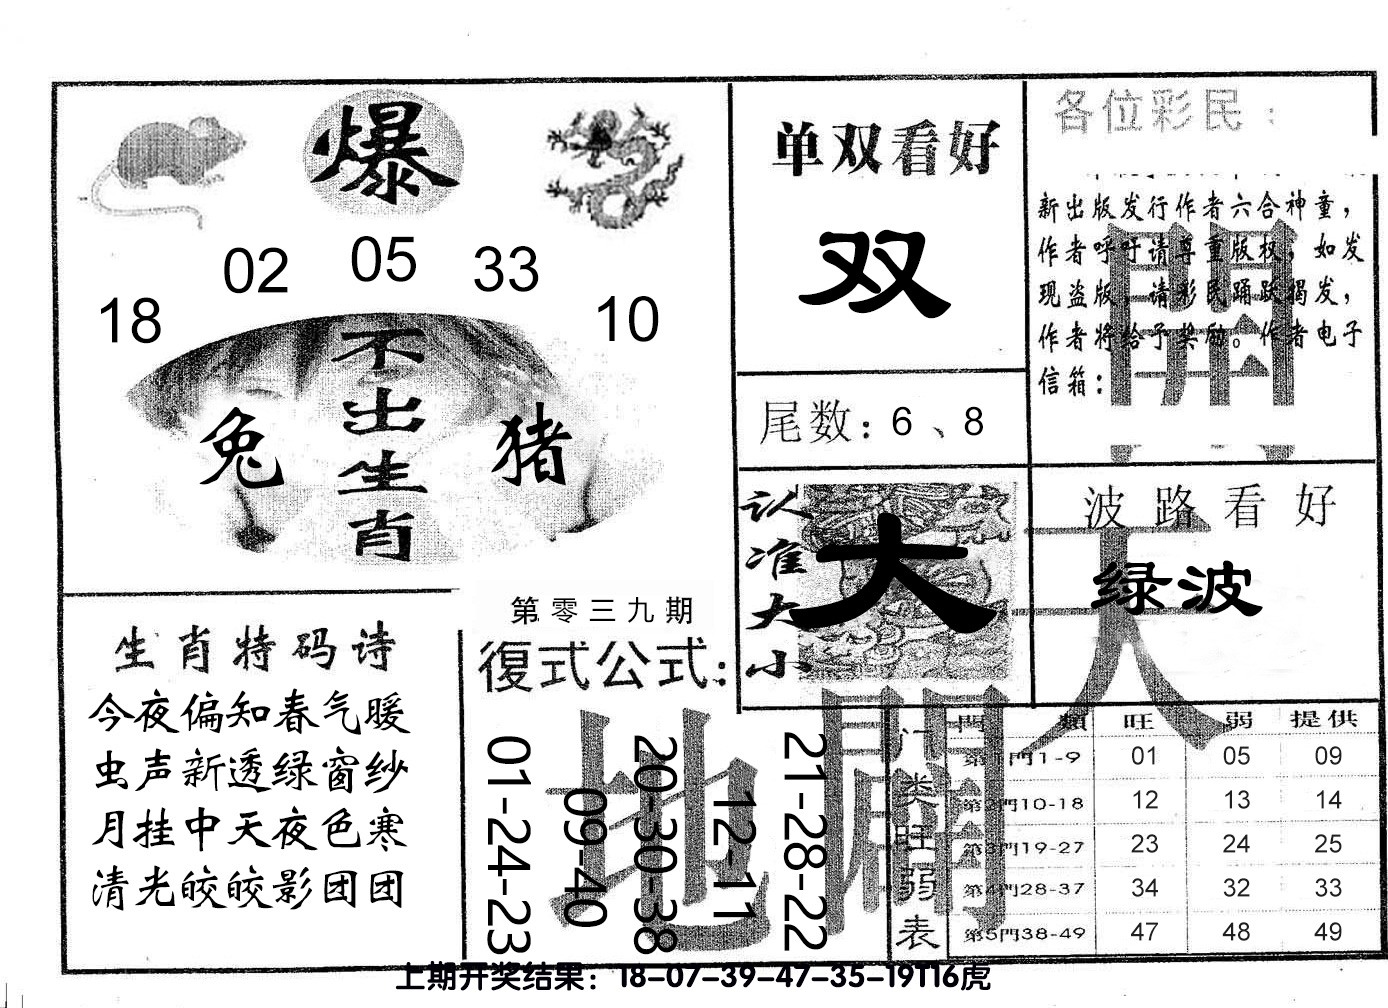 爆
18 02 05 33 10
不出生肖
兔
猪
单双看好
双
尾数：6、8
认准大小
大
各位彩民：
新出版发行作者六合神童，
作者呼吁请尊重版权，如发
现盗版，请彩民踊跃揭发，
作者将给予奖励。作者电子
信箱：
波路看好
绿波
天
地
開
開
生肖特码诗
今夜偏知春气暖
虫声新透绿窗纱
月挂中天夜色寒
清光皎皎影团团
第零三九期
復式公式：
01-24-23
09-40
20-30-38
12-11
21-28-22
门类旺弱表
門類 旺 弱 提供
第1門1-9 01 05 09
第2門10-18 12 13 14
第3門19-27 23 24 25
第4門28-37 34 32 33
第5門38-49 47 48 49
上期开奖结果：18-07-39-47-35-19T16虎